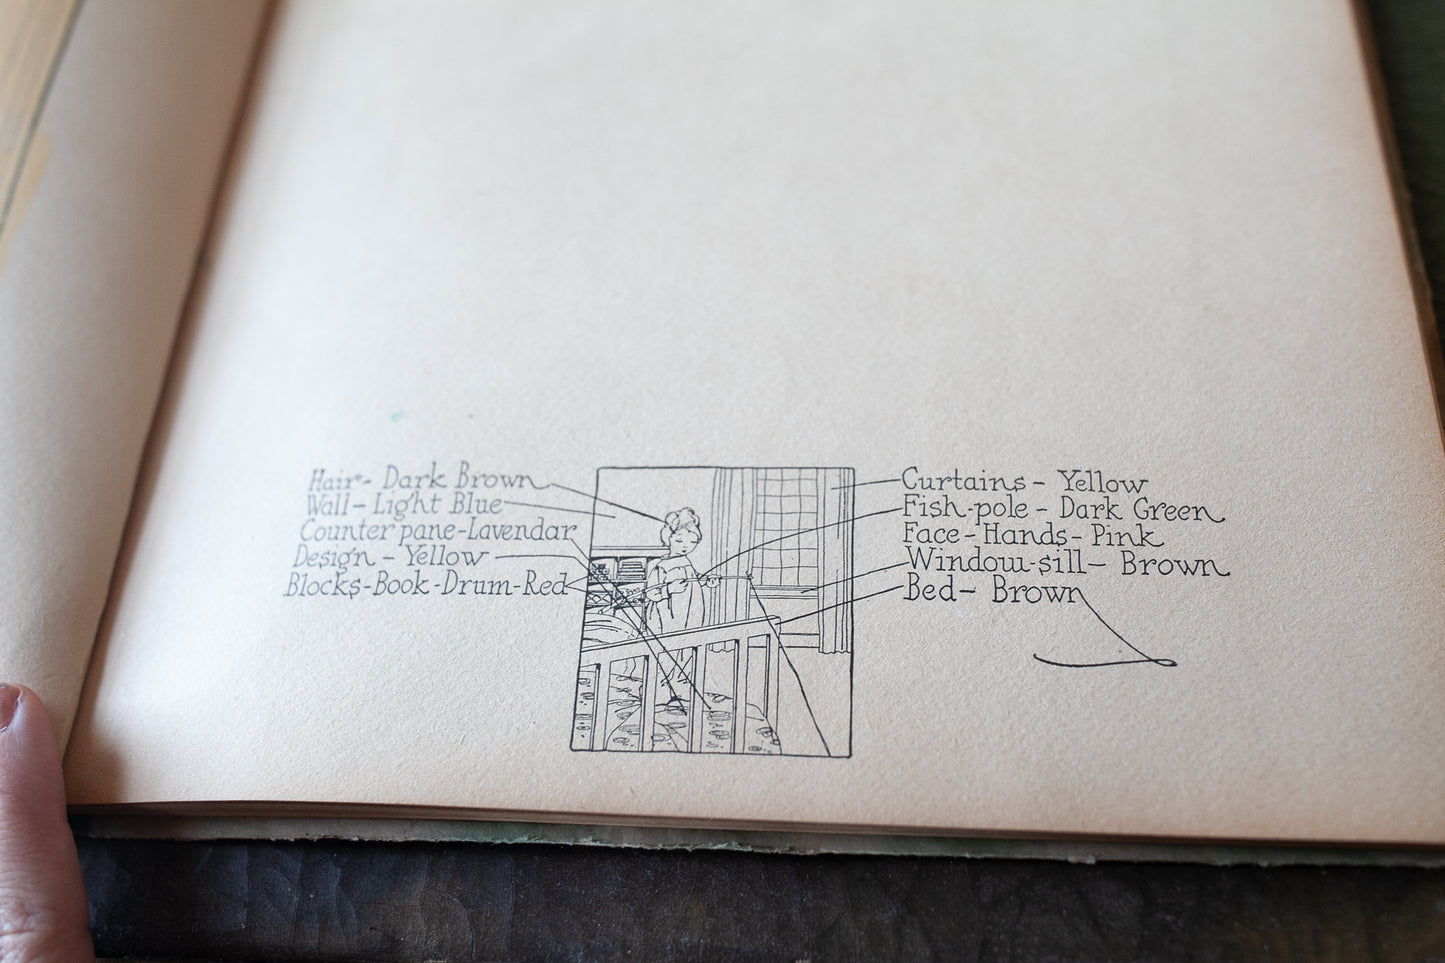 Hair - Dark Brown
Wall - Light Blue
Counter pane - Lavendar
Design - Yellow
Blocks - Book - Drum - Red
Curtains - Yellow
Fish-pole - Dark Green
Face - Hands - Pink
Window-sill - Brown
Bed - Brown